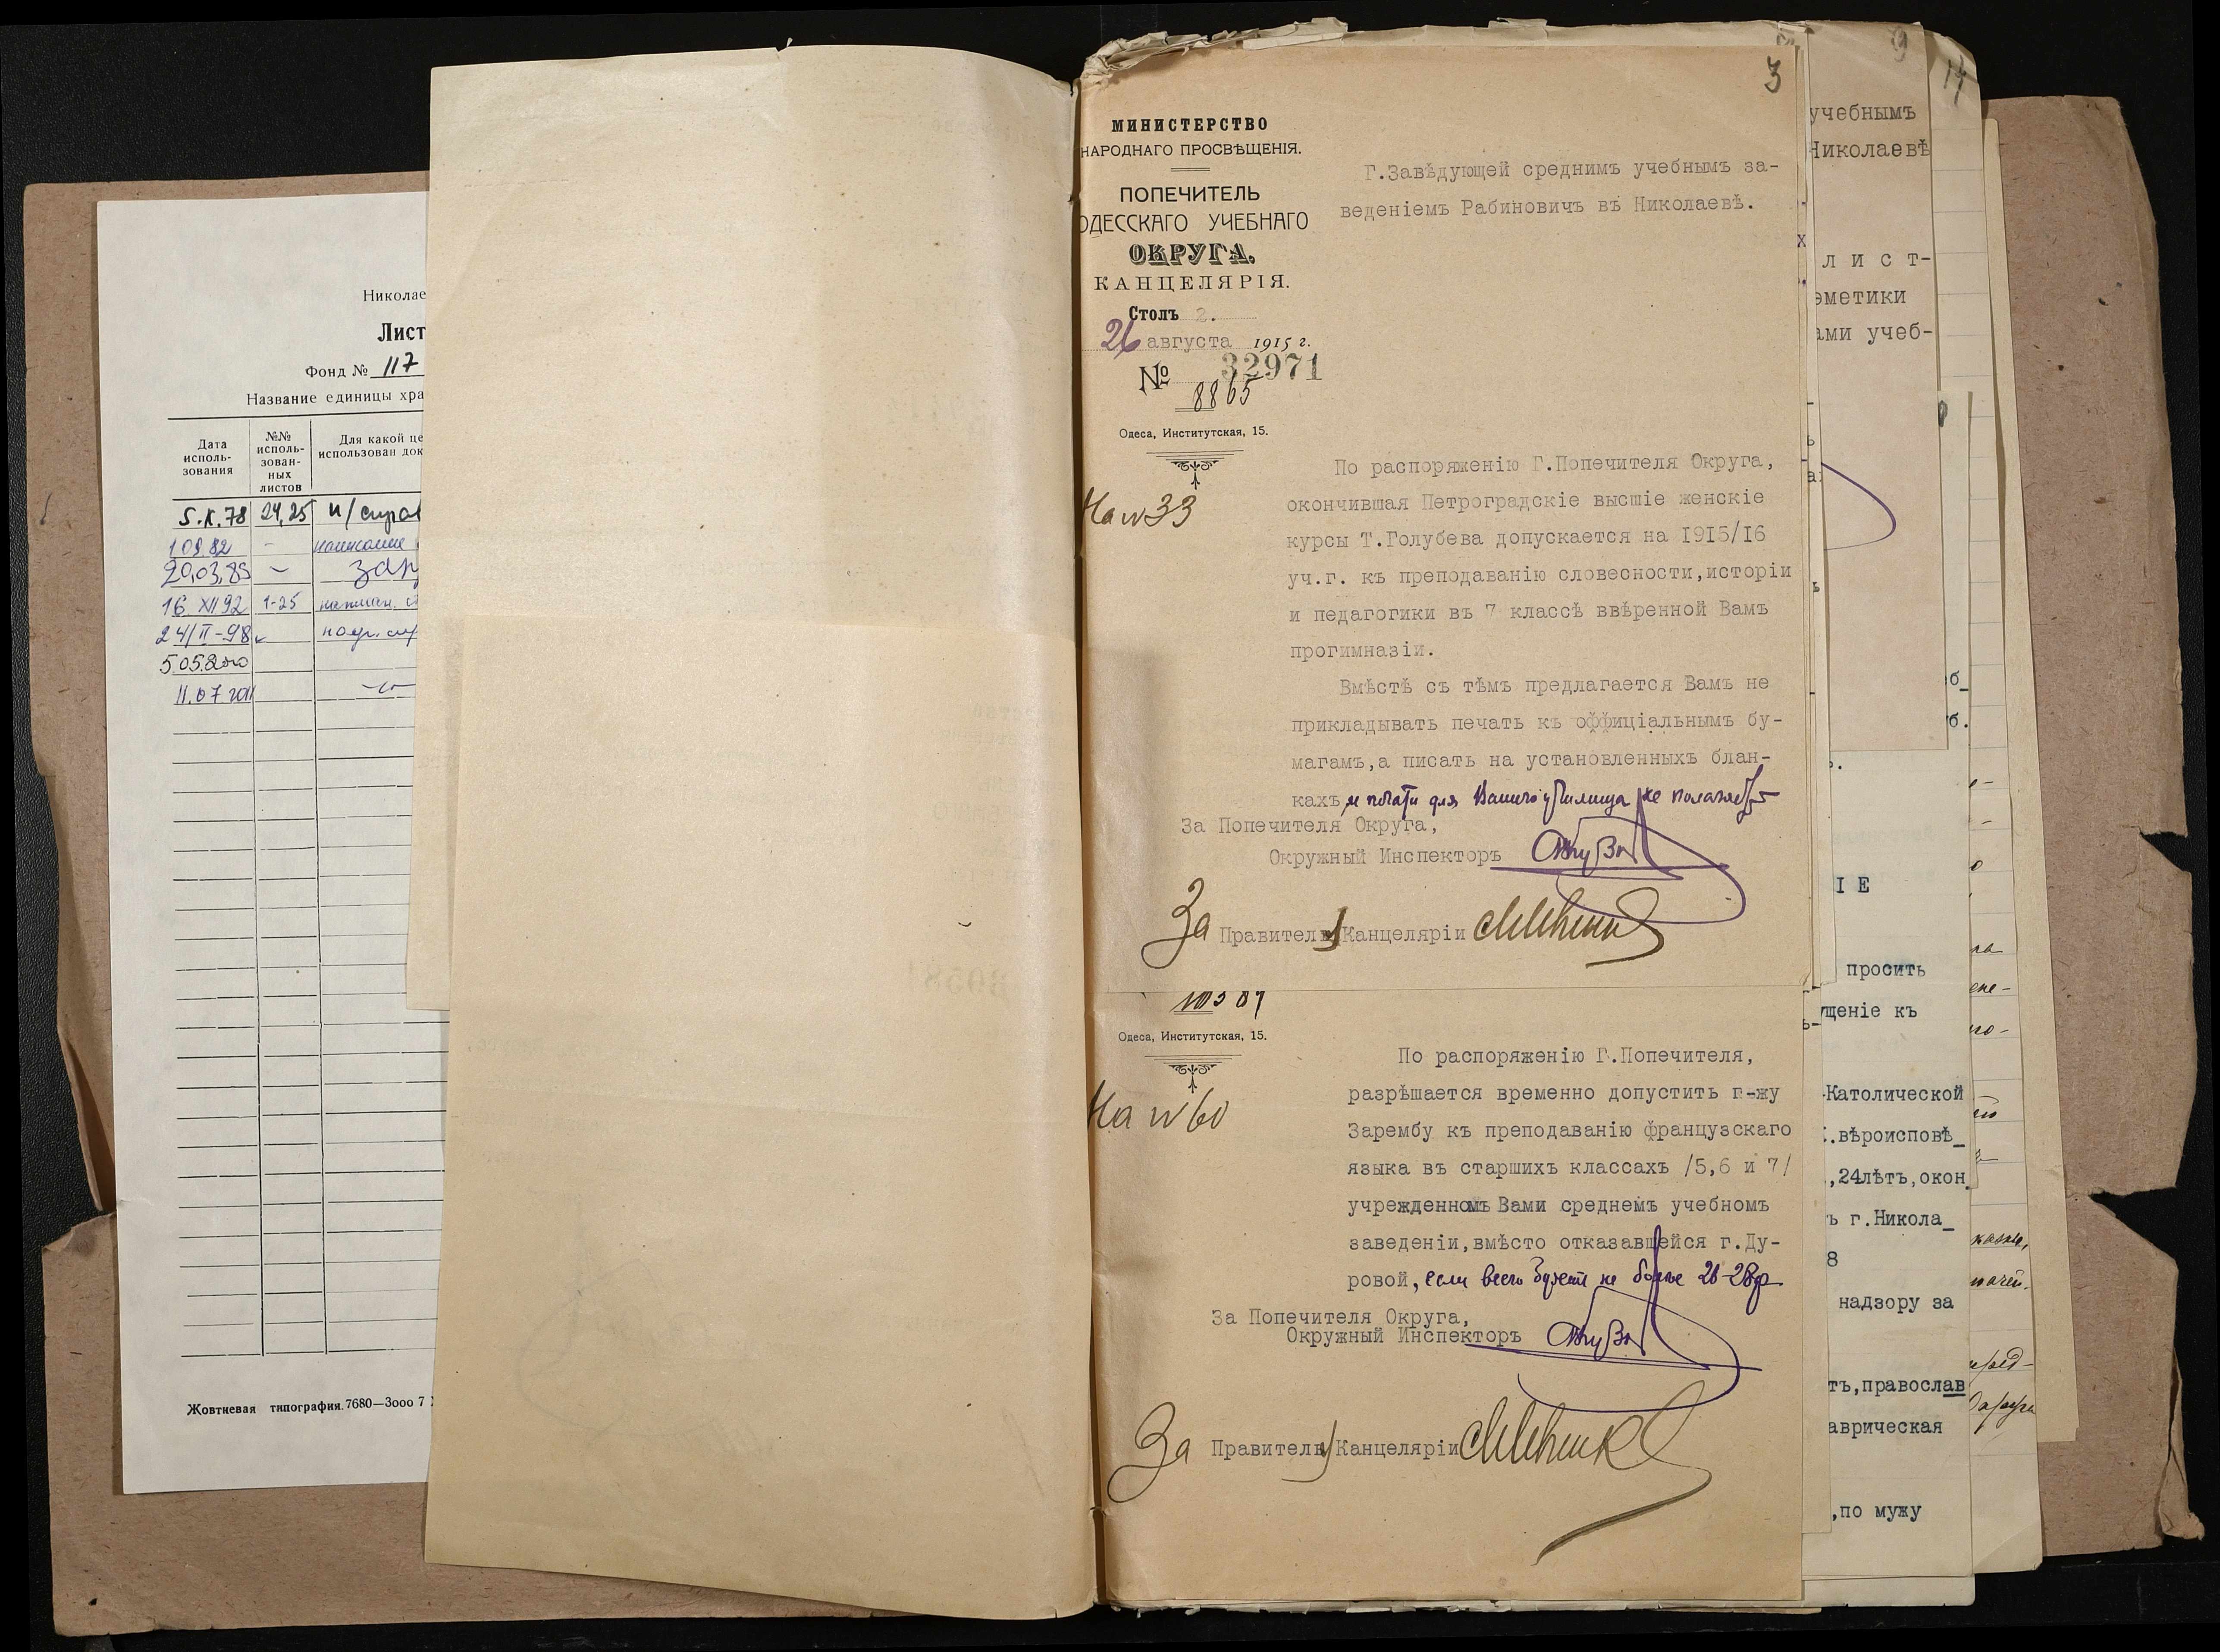 Николае
Лист
Фонд № 117
Название единицы хра
Дата использования
№№ использованных листов
Для какой це
использован док
5.X.78 24,25
1.09.82 -
20.03.85 -
16 XII 92 1-25
24/II-98
5.05.2000
11.07.2011
Жовтневая типография. 7680—3000 7
3
МИНИСТЕРСТВО
НАРОДНАГО ПРОСВѢЩЕНІЯ.
ПОПЕЧИТЕЛЬ
ОДЕССКАГО УЧЕБНАГО
ОКРУГА.
КАНЦЕЛЯРІЯ.
Столъ 2.
26 августа 1915 г.
№ 32971
8865
Одеса, Институтская, 15.
На № 33
Г.Завѣдующей среднимъ учебнымъ за-
веденіемъ Рабиновичъ въ Николаевѣ.
По распоряженію Г.Попечителя Округа,
окончившая Петроградскіе высшіе женскіе
курсы Т.Голубева допускается на 1915/16
уч.г. къ преподаванію словесности,исторіи
и педагогики въ 7 классѣ ввѣренной Вамъ
прогимназіи.
Вмѣстѣ съ тѣмъ предлагается Вамъ не
прикладывать печать къ оффиціальнымъ бу-
магамъ,а писать на установленныхъ блан-
кахъ, и печати для Вашего училища не полагается
За Попечителя Округа,
Окружный Инспекторъ
За Правителя Канцеляріи
Одеса, Институтская, 15.
На № 60
По распоряженію Г.Попечителя,
разрѣшается временно допустить г-жу
Зарембу къ преподаванію французскаго
языка въ старшихъ классахъ /5,6 и 7/
учрежденномъ Вами среднемъ учебномъ
заведеніи,вмѣсто отказавшейся г.Ду-
ровой, если всего будетъ не болѣе 26-28 ур.
За Попечителя Округа,
Окружный Инспекторъ
За Правителя Канцеляріи
9
14
учебнымъ
Николаевѣ
л и с т-
ометики
ами учеб-
І Е
просить
ущеніе къ
-Католической
.вѣроисповѣ_
,24лѣтъ,окон_
ъ г.Никола_
8
надзору за
тъ,православ
аврическая
,по мужу